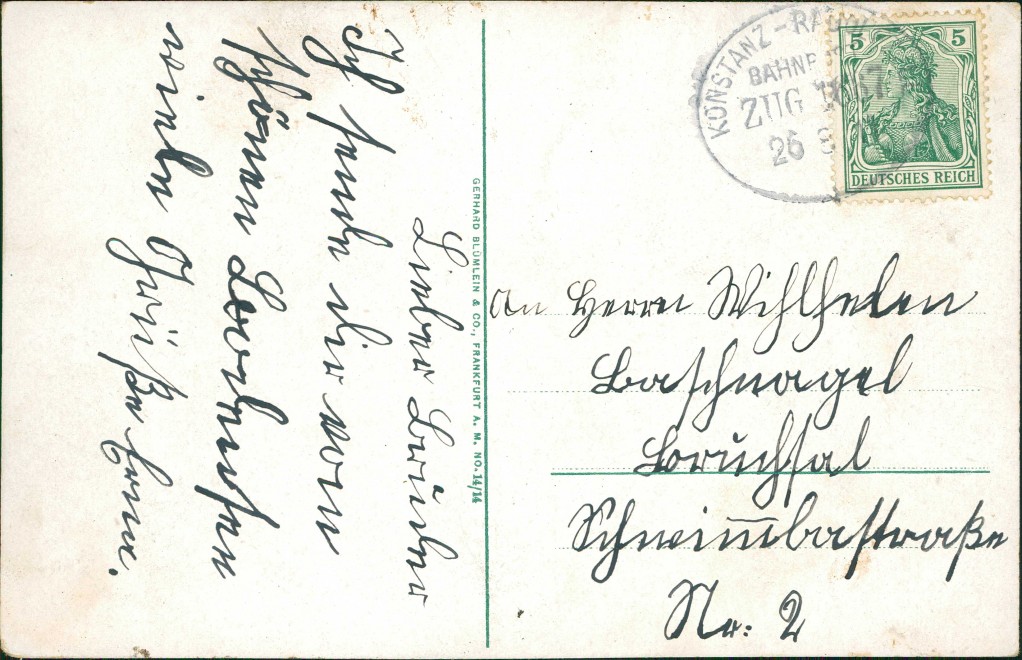 Lieber Bruder
Ich sende dir vom
schönen Bodensee
viele Grüße
GERHARD BLÜMLEIN & CO., FRANKFURT A. M. NO. 14/14
KONSTANZ -
BAHNP
ZUG
26 8
5 5
DEUTSCHES REICH
An Herrn Wihlhelm
Baschnagel
Bruchsal
Schwimmbastraße
Nr: 2